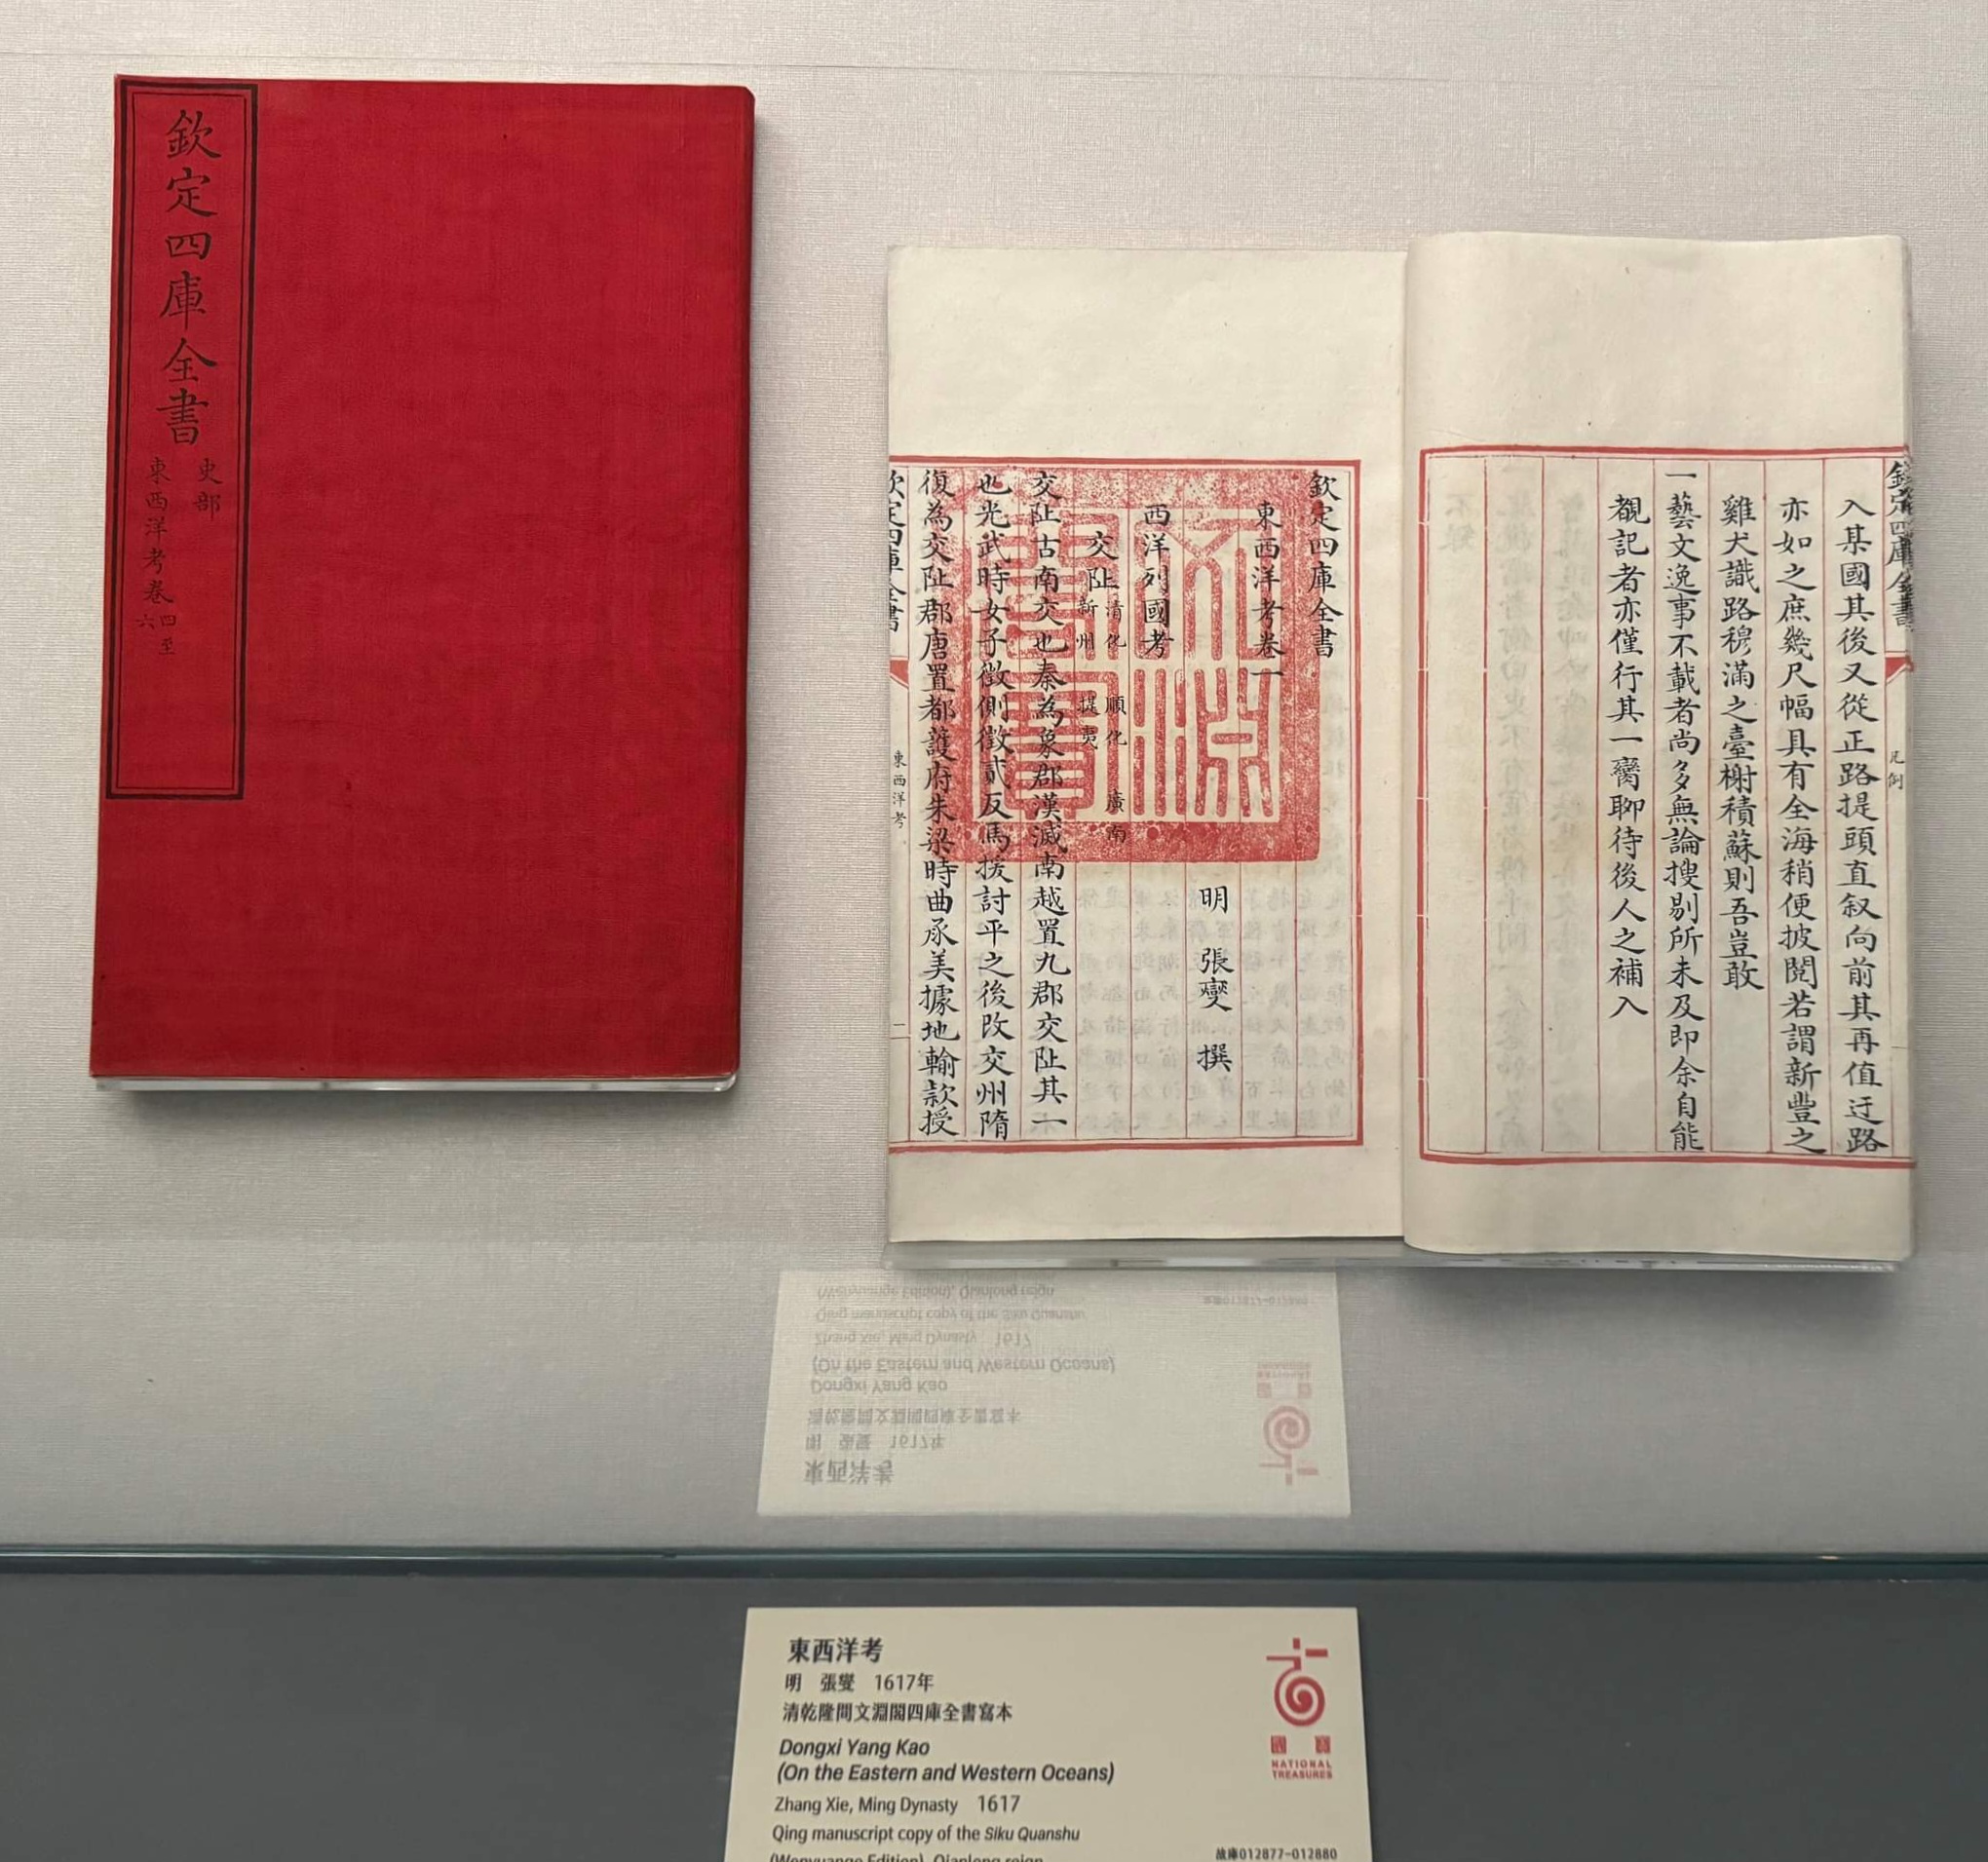 欽定四庫全書
史部
東西洋考卷四至六
欽定四庫全書
凡例
入某國其後又從正路提頭直叙向前其再值迂路
亦如之庶幾尺幅具有全海稍便披閱若謂新豐之
雞犬識路穆滿之臺榭積蘇則吾豈敢
一藝文逸事不載者尚多無論搜剔所未及即余自能
覩記者亦僅行其一臠聊待後人之補入
欽定四庫全書
東西洋考卷一
明 張燮 撰
西洋列國考
交阯 清化 順化 廣南 新州 提夷
交阯古南交也秦為象郡漢滅南越置九郡交阯其一
也光武時女子徵側徵貳反馬援討平之後改交州隋
復為交阯郡唐置都護府朱梁時曲承美據地輸款授
欽定四庫全書
東西洋考
二
文淵閣寶
東西洋考
明 張燮 1617年
清乾隆間文淵閣四庫全書寫本
Dongxi Yang Kao
(On the Eastern and Western Oceans)
Zhang Xie, Ming Dynasty 1617
Qing manuscript copy of the Siku Quanshu
(Wenyuange Edition), Qianlong reign
國寶
NATIONAL
TREASURES
故庫012877-012880